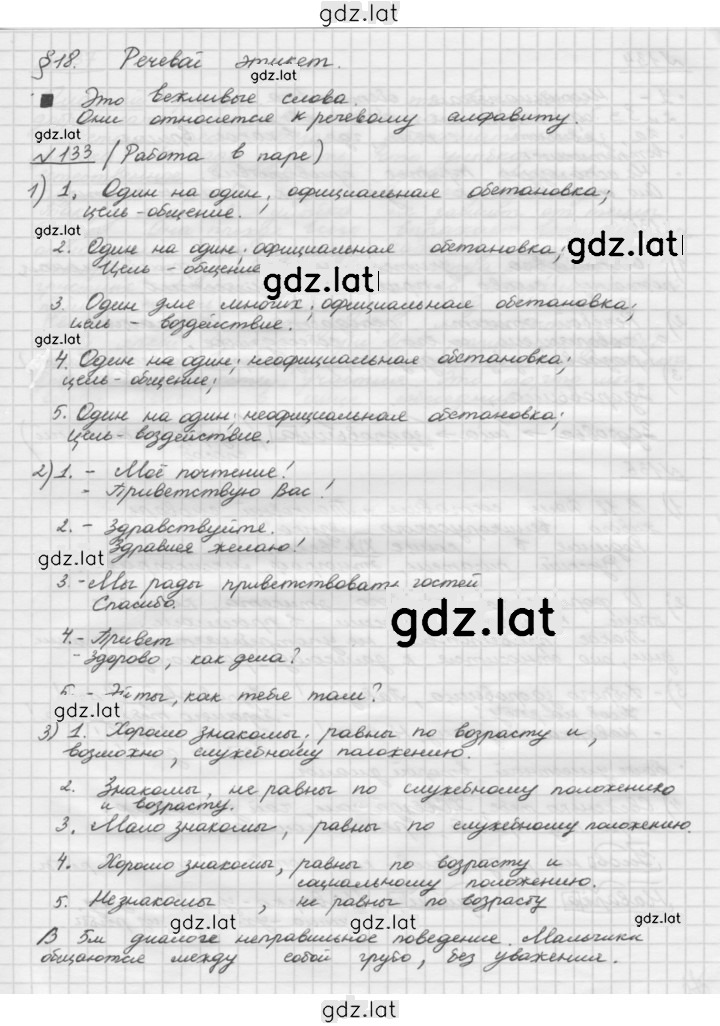 gdz.lat
§18. Речевай этикет.
gdz.lat
■ Это вежливые слова.
Они относятся к речевому алфавиту.
gdz.lat
№133 (Работа в паре)
1) 1. Один на один; официальная обстановка;
цель-общение.
gdz.lat
2. Один на один; официальная обстановка;
gdz.lat
Цель - общение
gdz.lat
3. Один для многих; официальная обстановка;
цель - воздействие.
gdz.lat
4. Один на один; неофициальная обстановка;
цель-общение;
5. Один на один; неофициальная обстановка;
цель-воздействие.
2) 1. - Моё почтение!
- Приветствую Вас!
2. - Здравствуйте.
Здравия желаю!
gdz.lat
3. - Мы рады приветствовать гостей
Спасибо.
gdz.lat
4. - Привет
- Здорово, как дела?
5. - Эй ты, как тебя там?
gdz.lat
3) 1. Хорошо знакомы; равны по возрасту и,
возможно, служебному положению.
2. Знакомы, не равны по служебному положению
и возрасту.
3. Мало знакомы, равны по служебному положению.
4. Хорошо знакомы, равны по возрасту и
социальному положению.
5. Незнакомы, не равны по возрасту
gdz.lat gdz.lat gdz.lat
В 5м диалоге неправильное поведение. Мальчики
общаются между собой грубо, без уважения.
gdz.lat